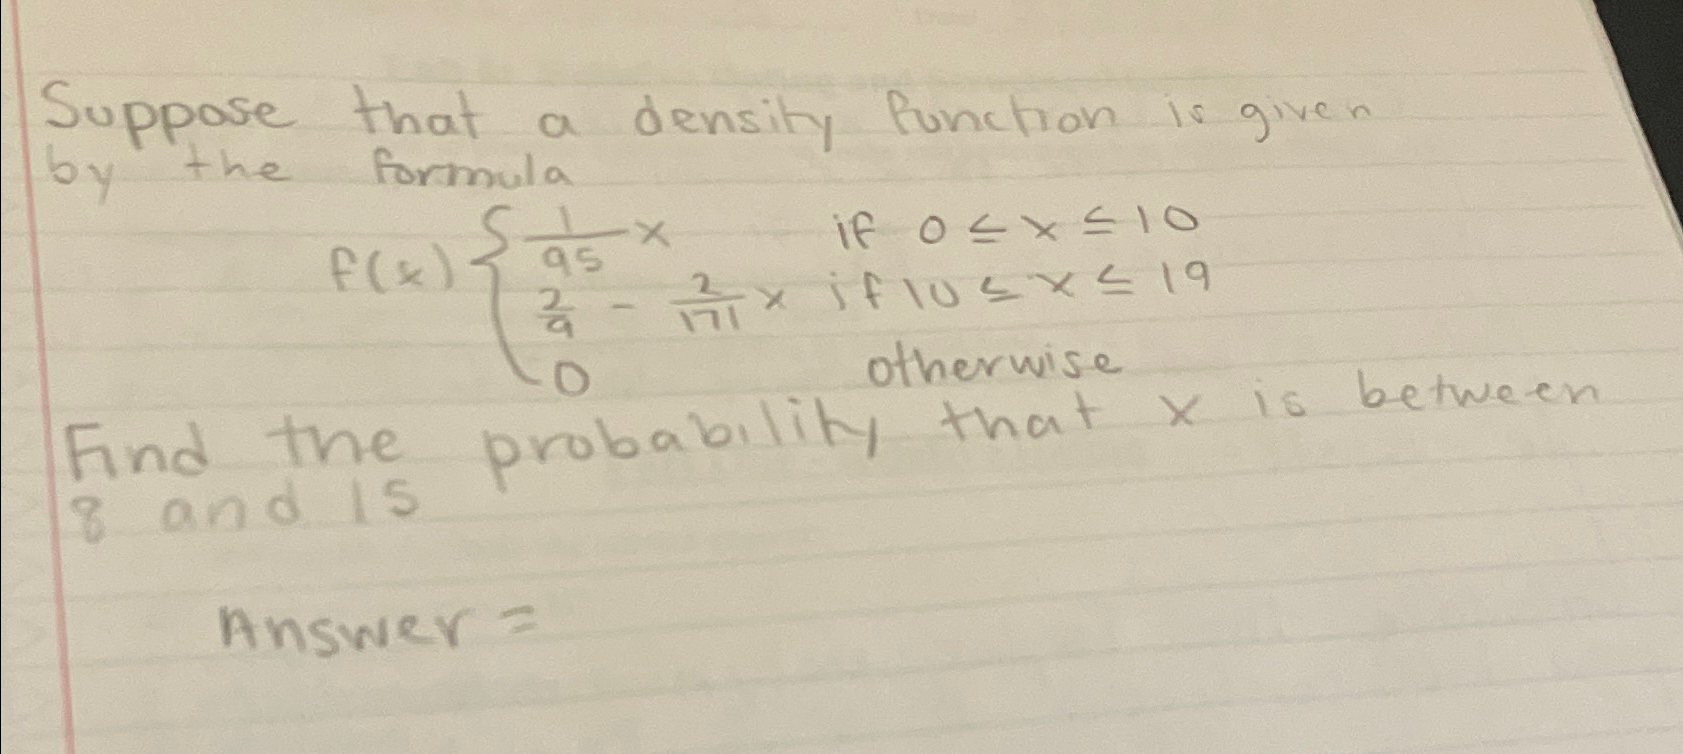 Suppose that a density function is given
by the formula
f(x) { 1/95 x if 0 ≤ x ≤ 10
2/9 - 2/171 x if 10 ≤ x ≤ 19
0 otherwise
Find the probability that x is between
8 and 15
Answer =